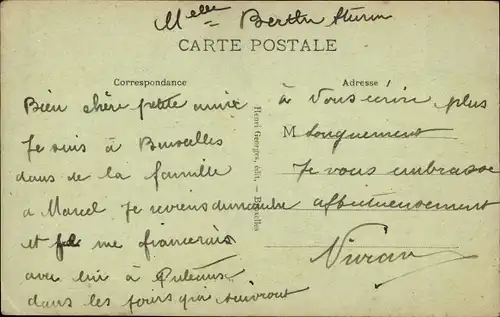 Melle Berthe Sturm
CARTE POSTALE
Correspondance
Bien chère petite amie
Je suis à Bruxelles
dans de la famille
a Marcel Je reviens dimanche
et me fiancerais
avec lui à Puteaux
dans les jours qui suivront
Henri Georges, édit. — Bruxelles
Adresse
à vous écrire plus
M longuement
Je vous embrasse
affectueusement